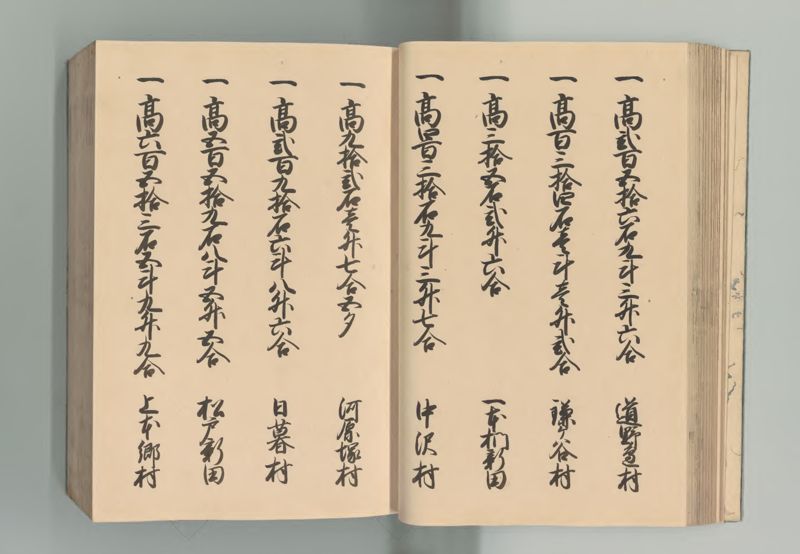 一 高弐百五拾六石九斗三升六合 道野辺村
一 高百三拾四石壱斗壱升弐合 鎌ケ谷村
一 高三拾五石弐升六合 一本椚新田
一 高四百三拾石九斗三升七合 中沢村
一 高九拾弐石壱升七合五夕 河原塚村
一 高弐百九拾石六斗八升六合 日暮村
一 高五百五拾九石八斗五升五合 松戸新田
一 高六百五拾三石五斗九升九合 上本郷村